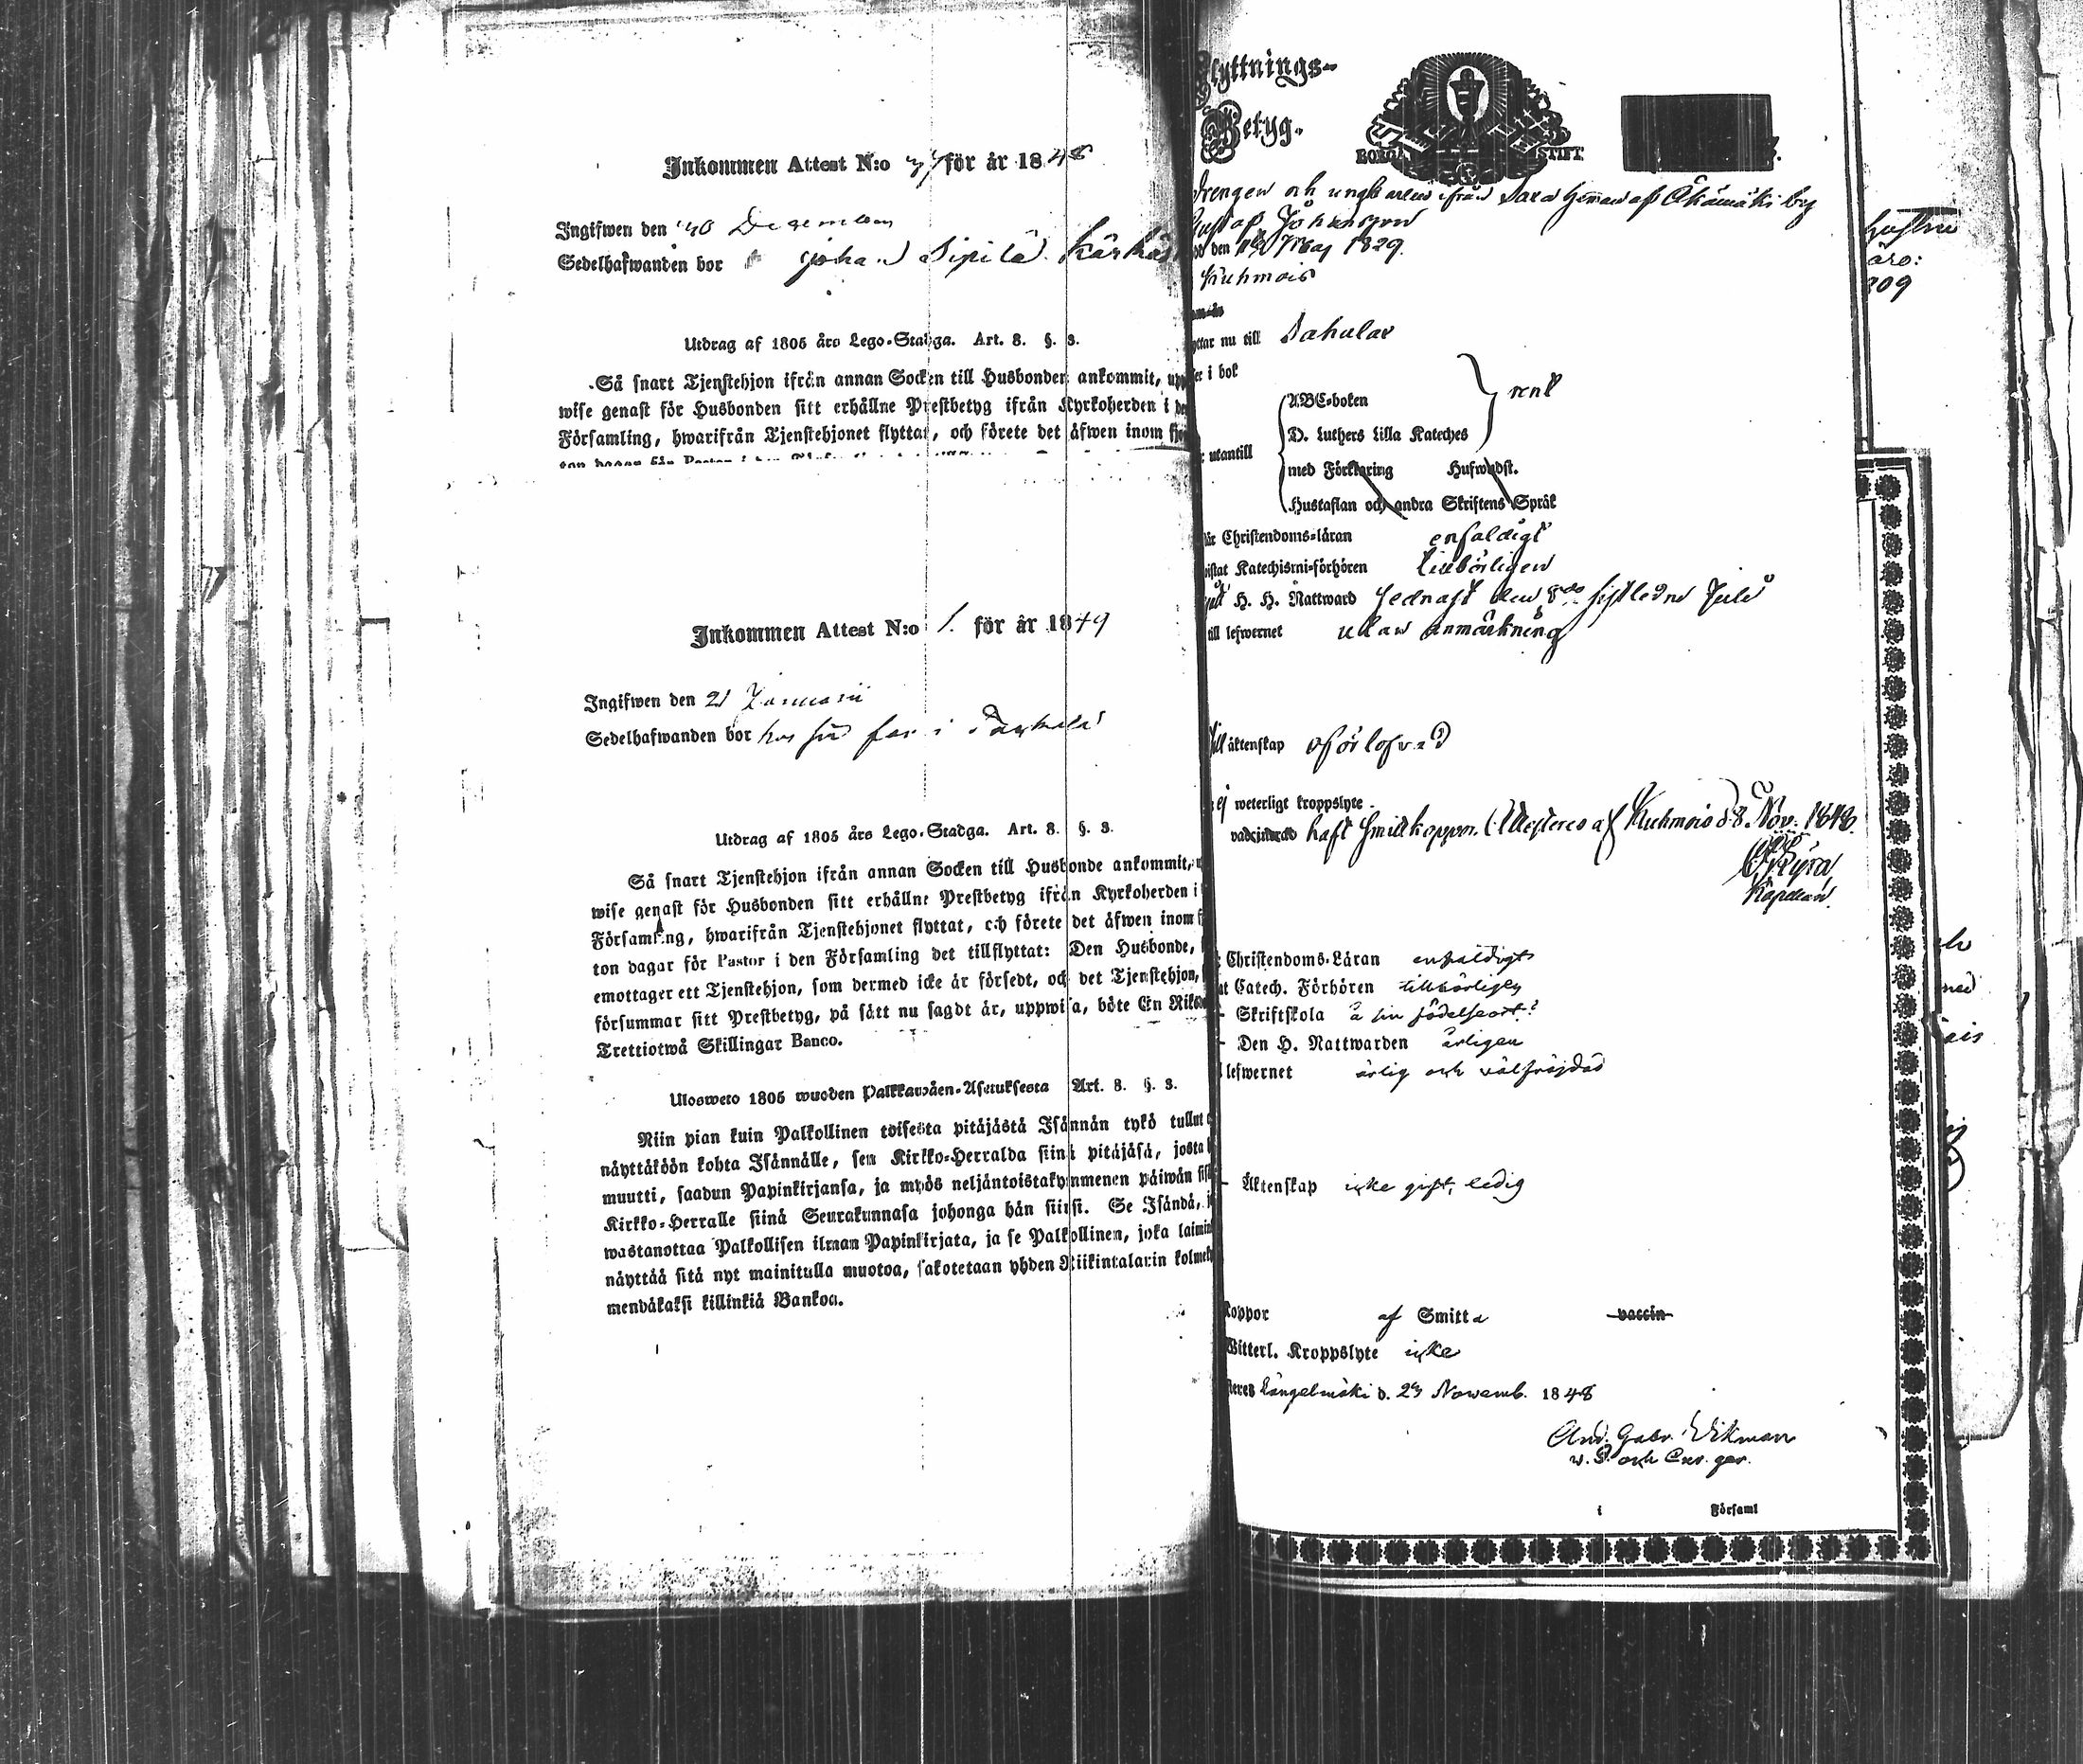 Inkommen Attest N:o för år 1848
Ingifwen den 30 December
Sedelhafwanden bor Johan Sipilä Kärkäs
Utdrag af 1805 års Lego-Stadga. Art. 8. §. 3.
Så snart Tjenstehjon ifrån annan Socken till Husbonden ankommit, upp
wise genast för Husbonden sitt erhållne Prestbetyg ifrån Kyrkoherden i de
Församling, hwarifrån Tjenstehjonet flyttat, och förete det äfwen inom fjor
ton dagar för Pastor i den
Inkommen Attest N:o 1. för år 1849
Ingifwen den 21 Januarii
Sedelhafwanden bor hos sin far i
Utdrag af 1805 års Lego-Stadga. Art. 8. §. 3.
Så snart Tjenstehjon ifrån annan Socken till Husbonde ankommit, u
wise genast för Husbonden sitt erhållne Prestbetyg ifrån Kyrkoherden i
Församling, hwarifrån Tjenstehjonet flyttat, och förete det äfwen inom f
ton dagar för Pastor i den Församling det tillflyttat: Den Husbonde,
emottager ett Tjenstehjon, som dermed icke är försedt, och det Tjenstehjon,
försummar sitt Prestbetyg, på sätt nu sagdt är, uppwisa, böte En Riks
Trettiotwå Skillingar Banco.
Ulosweto 1805 wuoden Palkkawäen-Asetuksesta Art. 8. §. 3.
Niin pian kuin Palkollinen toisesta pitäjästä Isännän tykö tullut
näyttäköön kohta Isännälle, sen Kirkko-Herralda siinä pitäjäsä, josta
muutti, saadun Papinkirjansa, ja myös neljäntoistakymmenen päiwän sis
Kirkko-Herralle siinä Seurakunnasa johonga hän siirsi. Se Isändä, j
wastanottaa Palkollisen ilman Papinkirjata, ja se Palkollinen, joka laimin
näyttää sitä nyt mainitulla muotoa, sakotetaan yhden Riikintalarin kolmek
mendäkaksi killinkiä Bankoa.
Flyttnings-
Betyg.
BORGÅ STIFT.
Drengen och ungkarlen ifrån Sara Heman af Äkämäki by
Gustaf Johansson
den Maj 1829.
Kuhmois
yttar nu till Sahalax
er i bok
utantill
ABC-boken
D. Luthers Lilla Kateches rent
med Förklaring Hufwudst.
Hustaflan och andra Skriftens Språk
Christendoms-läran enfaldigt
istat Katechismi-förhören tillbörligen
H. H. Nattward sednast den 8de sistledne Juli
till lefwernet utan anmärkning
till äktenskap oförlofvad
ej weterligt kroppslyte
vaccinerad haft Smittkoppor. Attesteras af Kuhmois d. 8 Nov. 1848.
Kapellan
Christendoms-Läran enfaldigt
at Catech. Förhören tillbörligen
Skriftskola å sin födelseort
Den H. Nattwarden årligen
lefwernet ärlig och välfräjdad
Äktenskap icke gift, ledig
Koppor af Smitta vaccin
Witterl. Kroppslyte icke
teres Längelmäki d. 29 Novemb. 1848
And. Gabr. Wikman
v. P. och Cur. ger.
i Församl
209